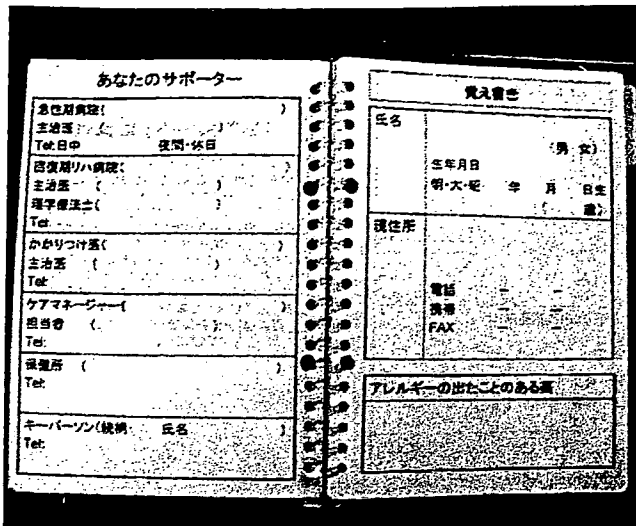 あなたのサポーター
急性期病院( )
主治医 ( )
Tel:日中 夜間・休日
回復期リハ病院( )
主治医 ( )
理学療法士( )
Tel:
かかりつけ医( )
主治医 ( )
Tel:
ケアマネージャー( )
担当者 ( )
Tel:
保健所 ( )
Tel:
キーパーソン(続柄 氏名 )
Tel:
覚え書き
氏名
(男 女)
生年月日
明・大・昭 年 月 日生
( 歳)
現住所
電話 － －
携帯 － －
FAX － －
アレルギーの出たことのある薬